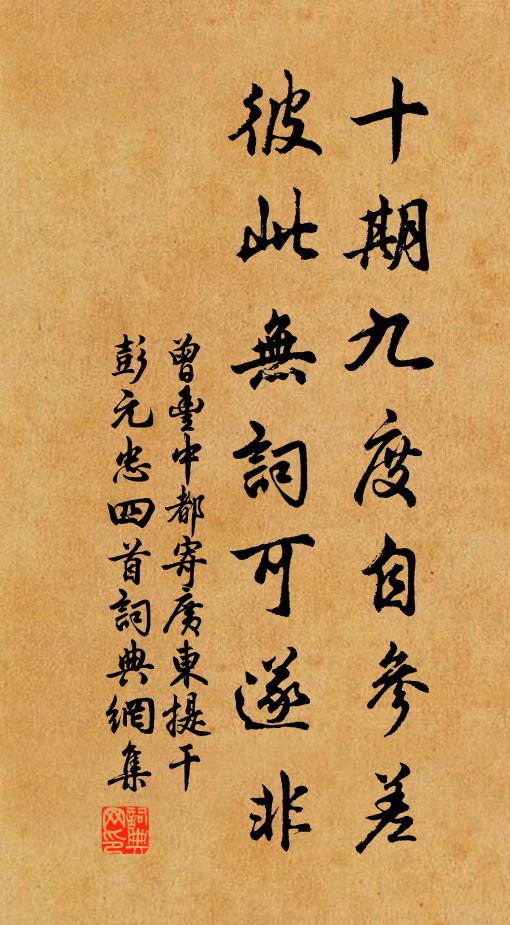 十期九度自參差
彼此無詞可遂非
曾豐中都寄廣東提干
彭元忠四首詞典網集
詞典網印